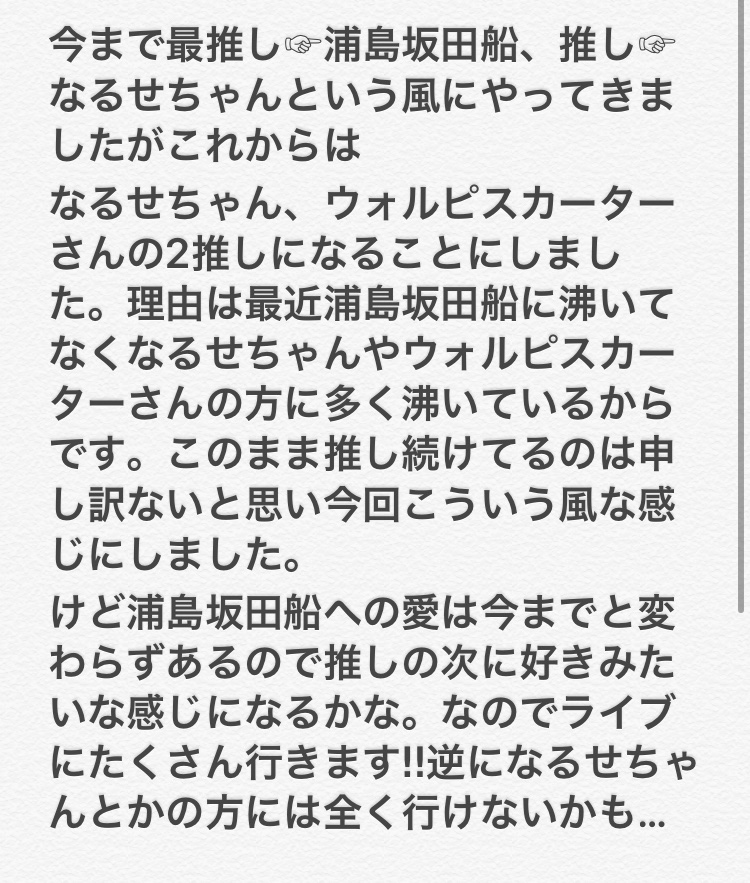 今まで最推し☞浦島坂田船、推し☞
なるせちゃんという風にやってきま
したがこれからは
なるせちゃん、ウォルピスカーター
さんの2推しになることにしまし
た。理由は最近浦島坂田船に沸いて
なくなるせちゃんやウォルピスカー
ターさんの方に多く沸いているから
です。このまま推し続けてるのは申
し訳ないと思い今回こういう風な感
じにしました。
けど浦島坂田船への愛は今までと変
わらずあるので推しの次に好きみた
いな感じになるかな。なのでライブ
にたくさん行きます!!逆になるせちゃ
んとかの方には全く行けないかも...